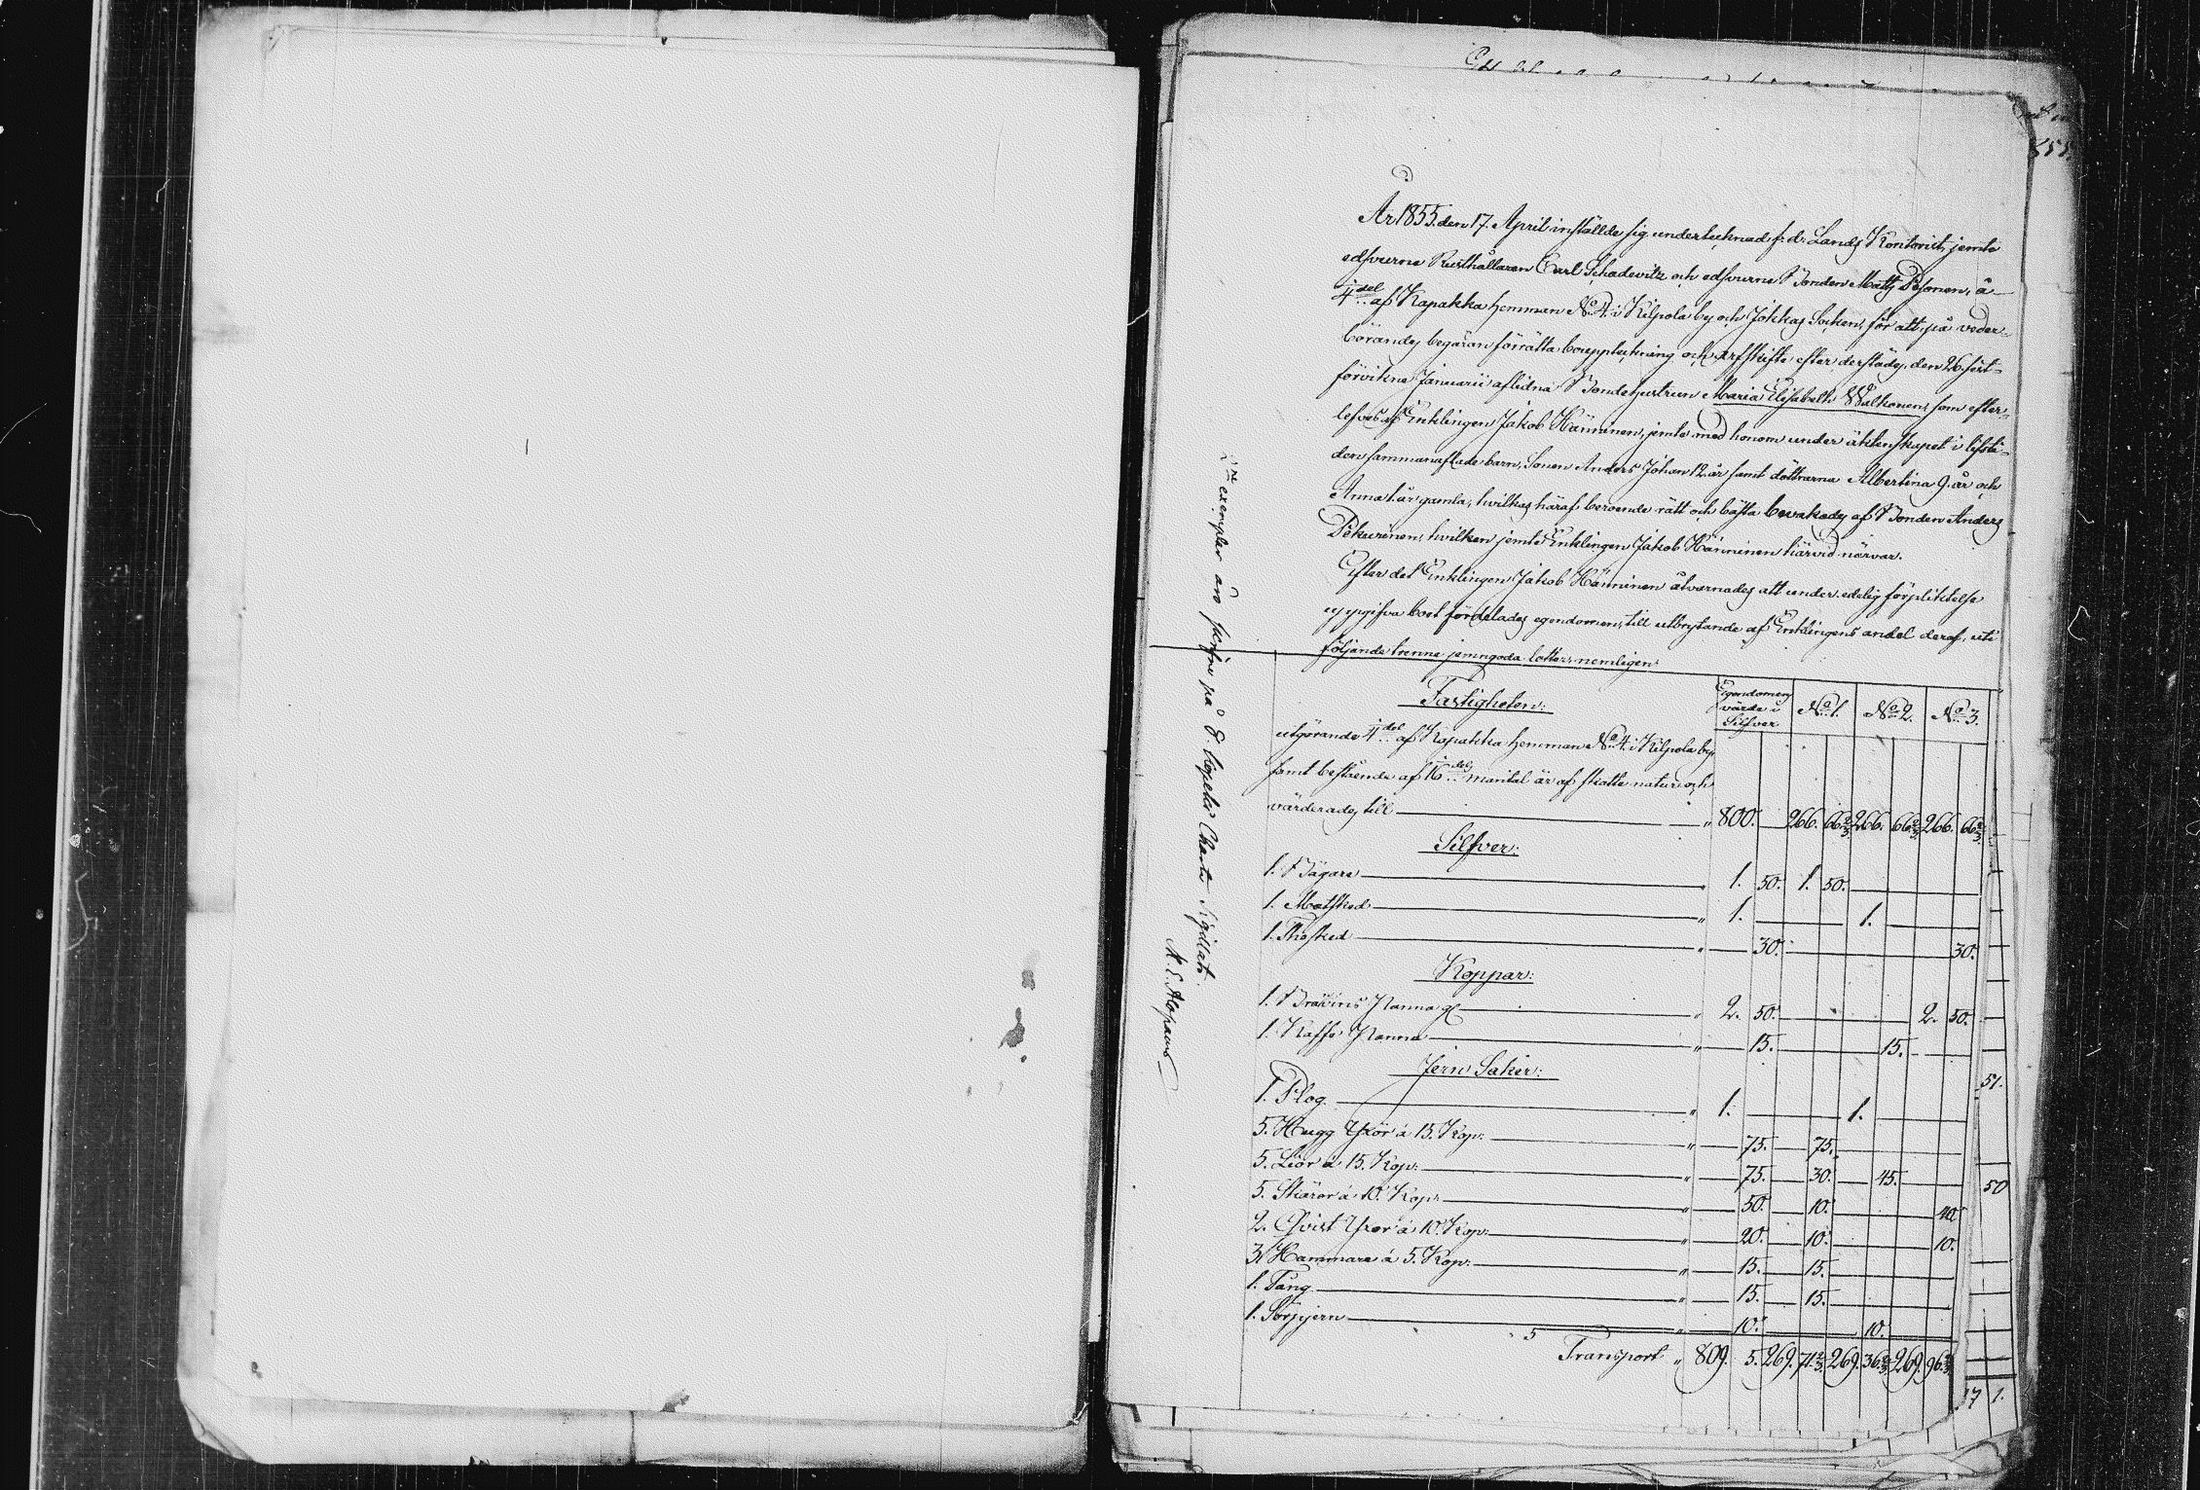 År 1855. den 17. April inställde sig undertecknad f: d: Lands Kontorist, jemte
edsvurne Rusthållaren Carl Schadevitz och edsvurne Bonden Matts Pesonen, å
¼del af Kapakka hemman No 4. i Kilpola by och Jokkas Socken, för att, på veder-
börandes begäran förrätta bouppteckning och arfskifte efter derstädes, den 26. sist-
förvikne Januarii aflidna Bondehustrun Maria Elisabeth Walkonen, som efter-
lefves af Enklingen Jakob Hänninen, jemte med honom under äktenskapet i lifsti-
den sammanaflade barn, Sonen Anders Johan 12 år samt döttrarna Albertina 9. år och
Anna 1. år gamla, hvilkas häraf beroende rätt och bästa bevakades af Bonden Anders
Pekurinen, hvilken jemte Enklingen Jakob Hänninen härvid närvar.
Efter det Enklingen Jakob Hänninen åtvarnades att under edelig förpliktelse
uppgifva boet fördelades egendomen, till utbrytande af Enklingens andel deraf, uti
följande trenne jemngoda lotter, nemligen:
Egendomens värde i Silfver No 1. No 2. No 3.
Fastigheten:
utgörande ¼del af Kapakka hemman No 4. i Kilpola by
samt bestående af 1/16del mantal är af skatte natur och
värderades till " 800. 266. 66 2/3 266. 66 2/3 266. 66 2/3.
Silfver:
1. Bägare " 1. 50. 1. 50.
1. Matsked " 1. 1.
1. Thesked " 30. 30.
Koppar:
1. Bränvins Panna " 2. 50. 2. 50.
1. Kaffe Panna " 15. 15.
Jern Saker:
1. Plog " 1. 1.
5. Hugg Yxor à 15. Kop: " 75. 75.
5. Lior à 15. Kop: " 75. 30. 45.
5. Skäror à 10. Kop: " 50. 10. 40.
2. Qvist Yxor à 10. Kop: " 20. 10. 10.
3. Hammare à 5. Kop: " 15. 15.
1. Tång " 15. 15.
1. Törpjern " 10. 10.
Transport " 809. 5. 269. 71 2/3 269. 36 2/3 269. 96 2/3
2ne exemplar äro skrifne på
51.
50
17 1.